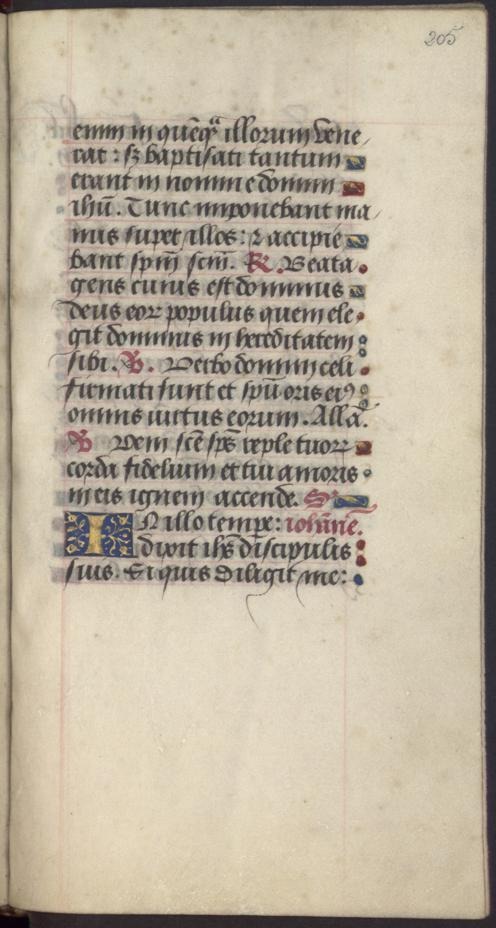 205
enim in quēqꝫ illorum vene
rat : sꝫ baptisati tantum
erant in nomine domini
ihū. Tunc imponebant ma
nus super illos : ⁊ accipie
bant spm̄ scm̄. R. Beata
gens cuius est dominus
deus eoꝝ populus quem ele
git dominus in hereditatem
sibi. V. Verbo domini celi
firmati sunt et spū oris eiꝰ
omnis virtus eorum. Allā.
V Veni scē sp̄s reple tuoꝝ
corda fidelium et tui amoris
in eis ignem accende. S
IN illo tempe: iohāne.
dixit ihs discipulis
suis. Si quis diligit me: